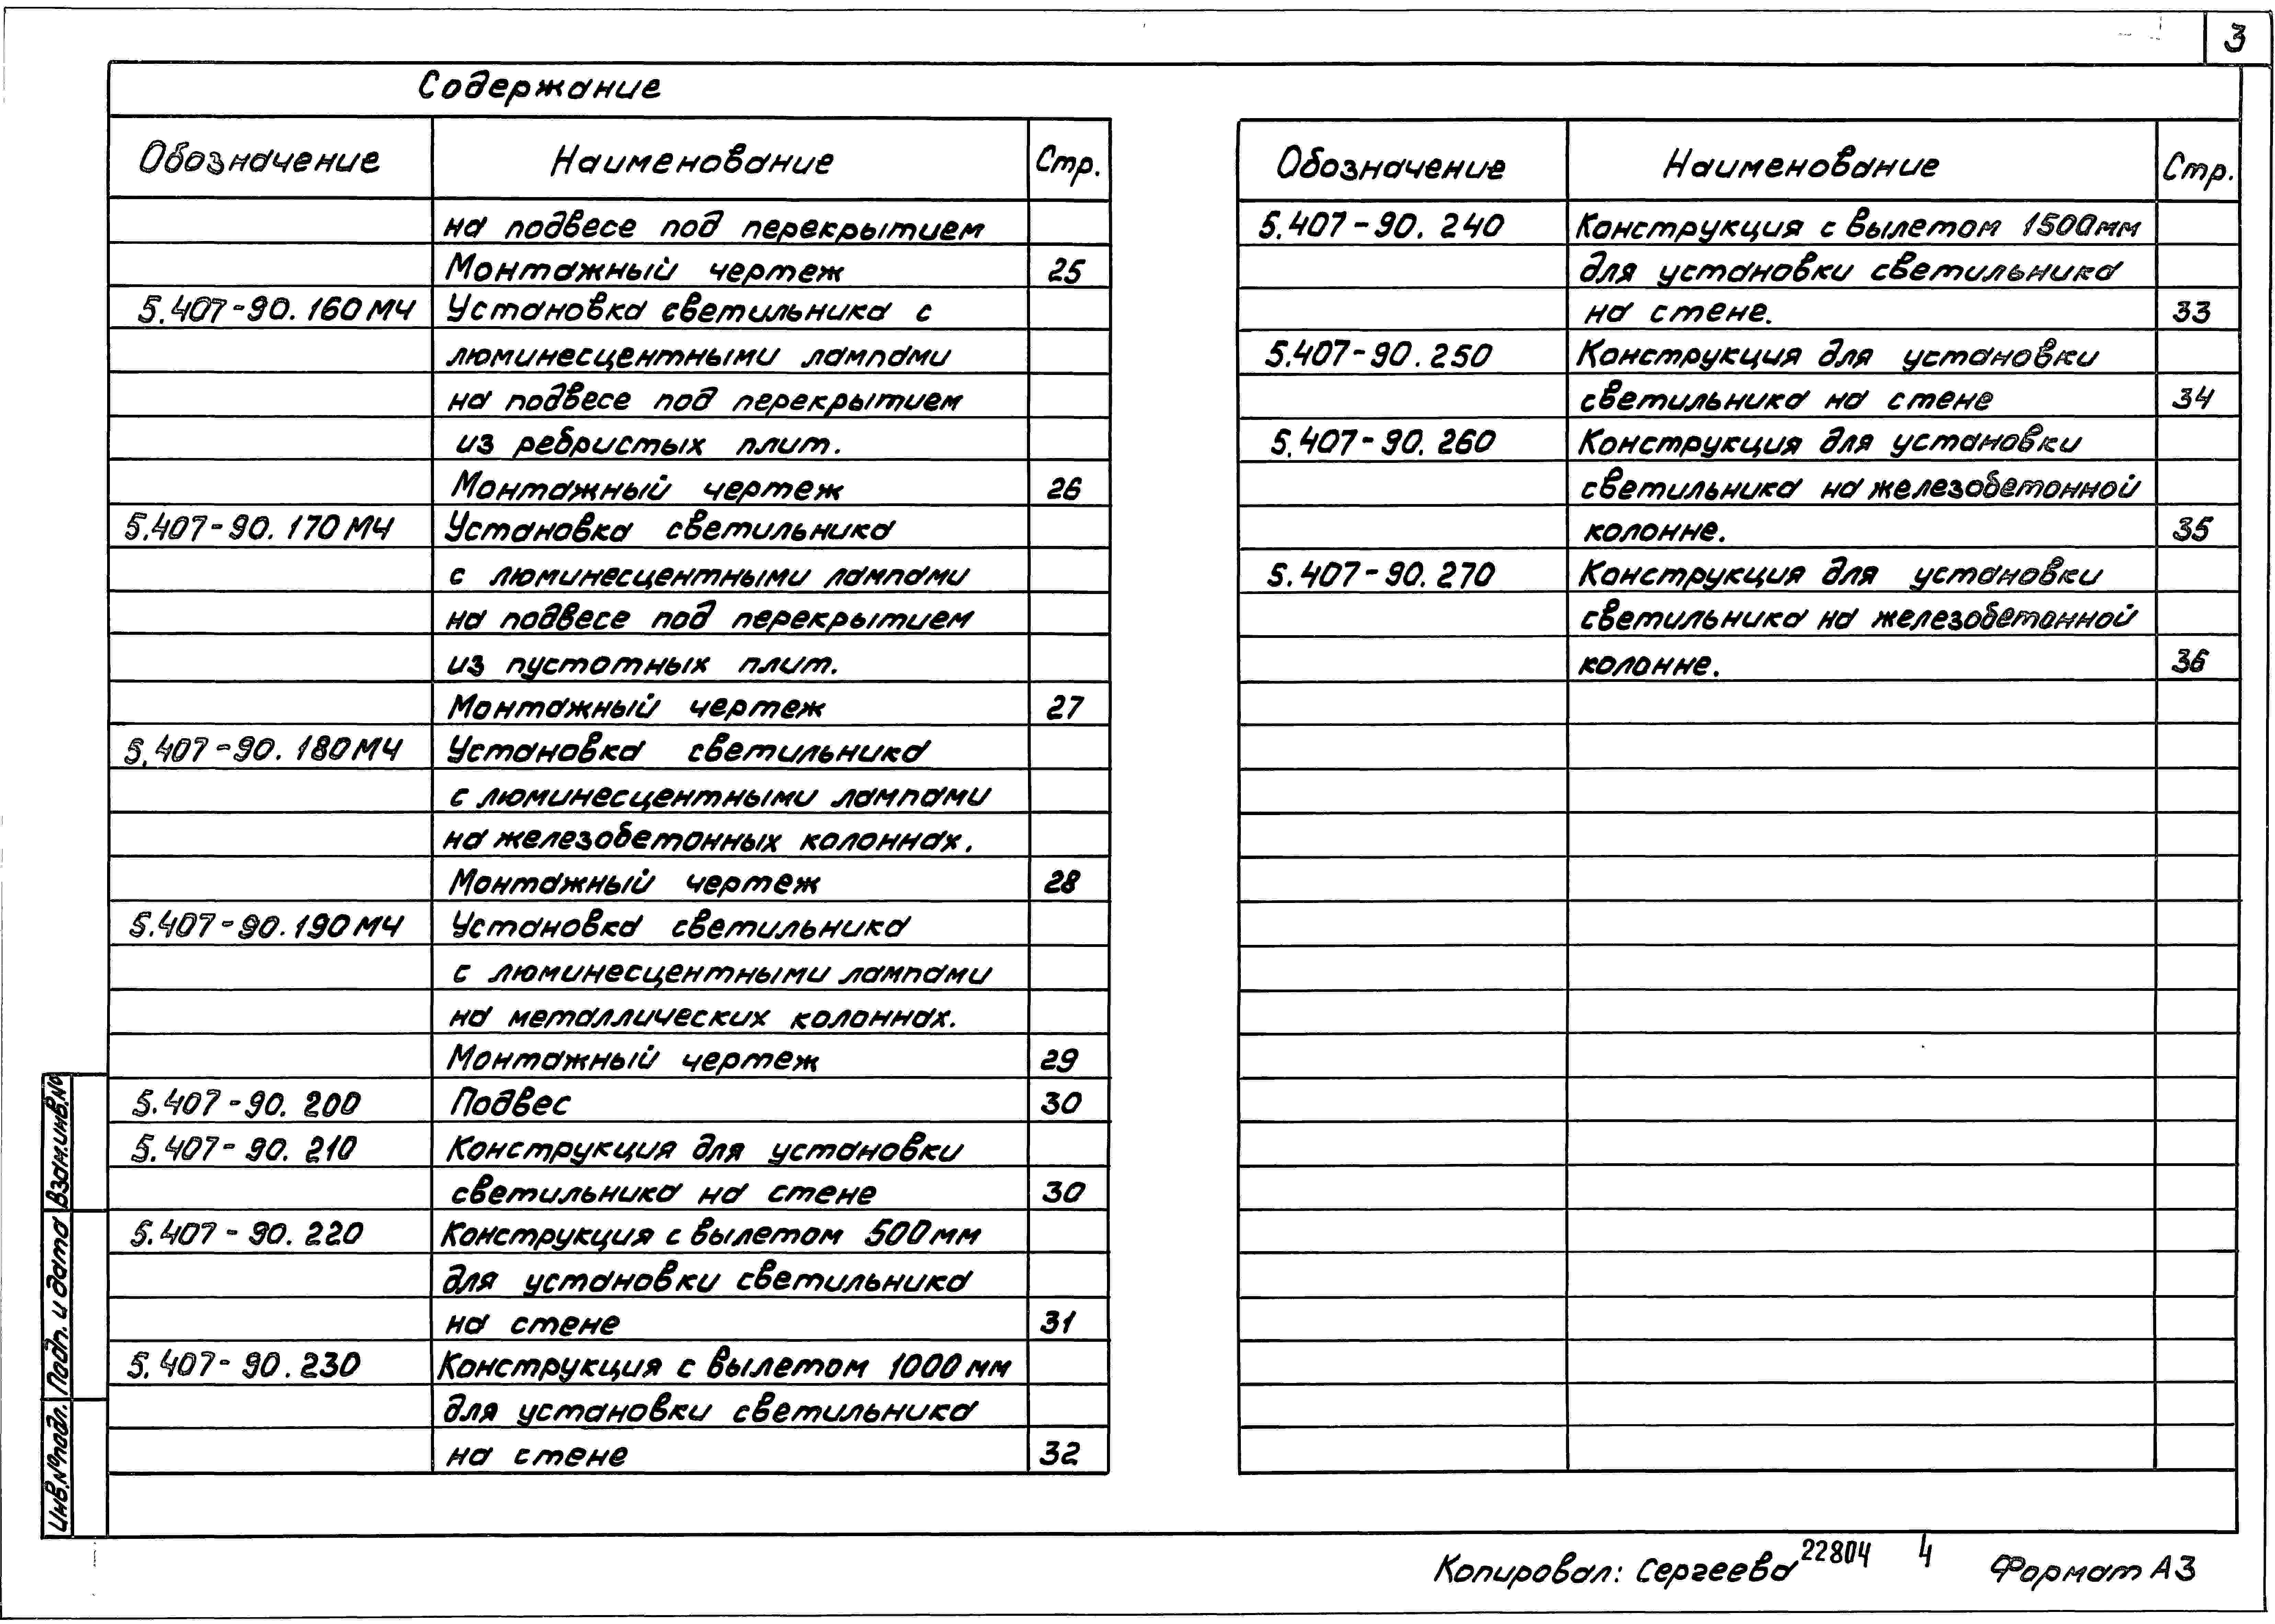 3
Содержание
Обозначение Наименование Стр.
на подвесе под перекрытием
Монтажный чертеж 25
5.407-90.160МЧ Установка светильника с
люминесцентными лампами
на подвесе под перекрытием
из ребристых плит.
Монтажный чертеж 26
5.407-90.170МЧ Установка светильника
с люминесцентными лампами
на подвесе под перекрытием
из пустотных плит.
Монтажный чертеж 27
5.407-90.180МЧ Установка светильника
с люминесцентными лампами
на железобетонных колоннах.
Монтажный чертеж 28
5.407-90.190МЧ Установка светильника
с люминесцентными лампами
на металлических колоннах.
Монтажный чертеж 29
5.407-90.200 Подвес 30
5.407-90.210 Конструкция для установки
светильника на стене 30
5.407-90.220 Конструкция с вылетом 500мм
для установки светильника
на стене 31
5.407-90.230 Конструкция с вылетом 1000мм
для установки светильника
на стене 32
Обозначение Наименование Стр.
5.407-90.240 Конструкция с вылетом 1500мм
для установки светильника
на стене. 33
5.407-90.250 Конструкция для установки
светильника на стене 34
5.407-90.260 Конструкция для установки
светильника на железобетонной
колонне. 35
5.407-90.270 Конструкция для установки
светильника на железобетонной
колонне. 36
Взам.инв.№
Подп. и дата
Инв.№подл.
Копировал: Сергеева 22804 4 Формат А3